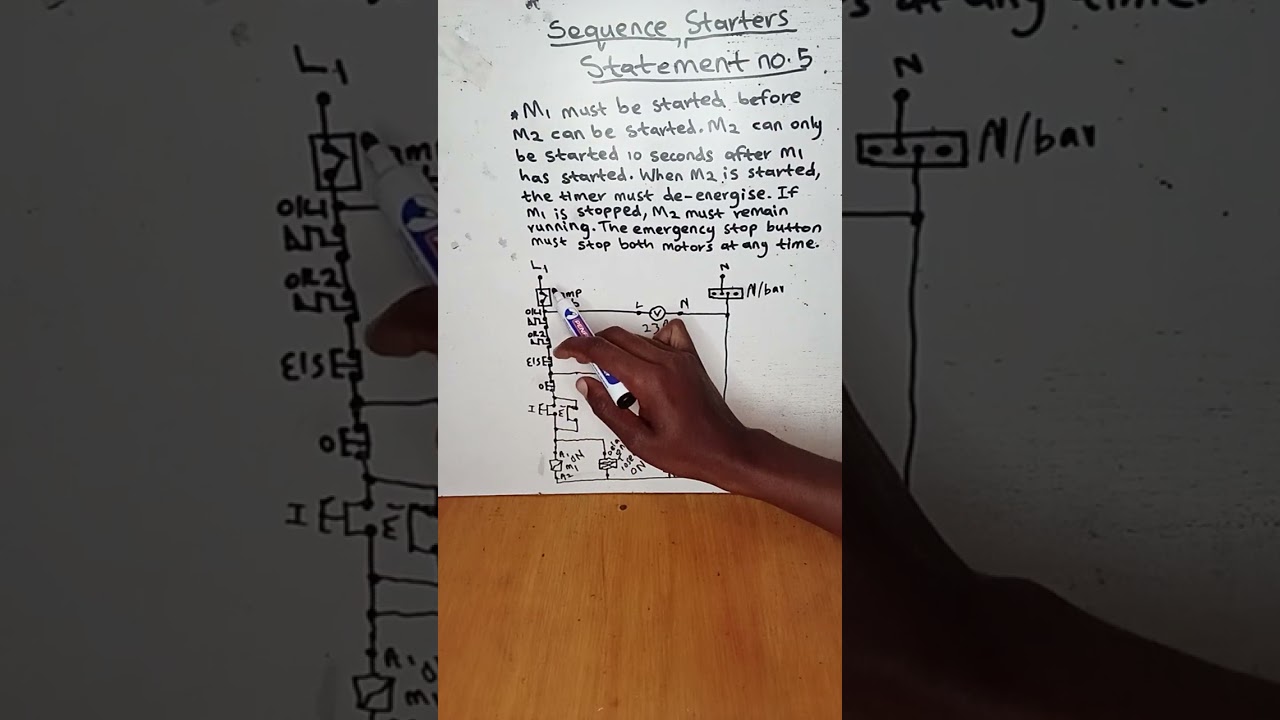 Sequence Starters
Statement no. 5
* M1 must be started before
M2 can be started. M2 can only
be started 10 seconds after M1
has started. When M2 is started,
the timer must de-energise. If
M1 is stopped, M2 must remain
running. The emergency stop button
must stop both motors at any time.
L1
N
N/bar
O/L1
L
V
N
OR2
E/S
O
I
M1
A1
ON
M1
A2
ON